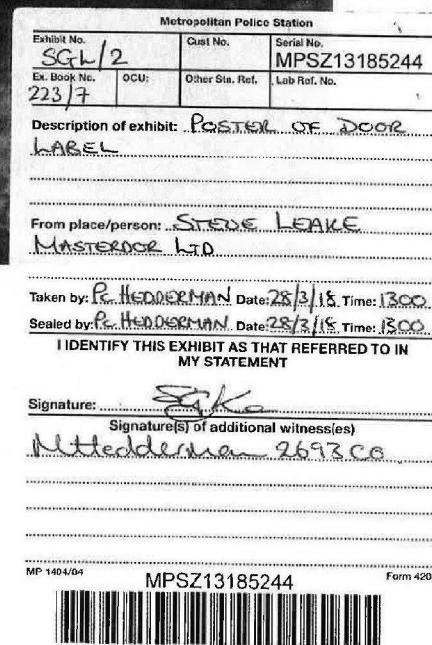 Metropolitan Police Station
Exhibit No. Cust No. Serial No.
SGL/2 MPSZ13185244
Ex. Book No. OCU: Other Stn. Ref. Lab Ref. No.
223/7
Description of exhibit: POSTER OF DOOR
LABEL
From place/person: STEVE LEAKE
MASTERDOR LTD
Taken by: PC HEDDERMAN Date: 28/3/18 Time: 1300
Sealed by: PC HEDDERMAN Date: 28/3/18 Time: 1300
I IDENTIFY THIS EXHIBIT AS THAT REFERRED TO IN
MY STATEMENT
Signature:
Signature(s) of additional witness(es)
MHedderman 2693CO
MP 1404/04 MPSZ13185244 Form 420